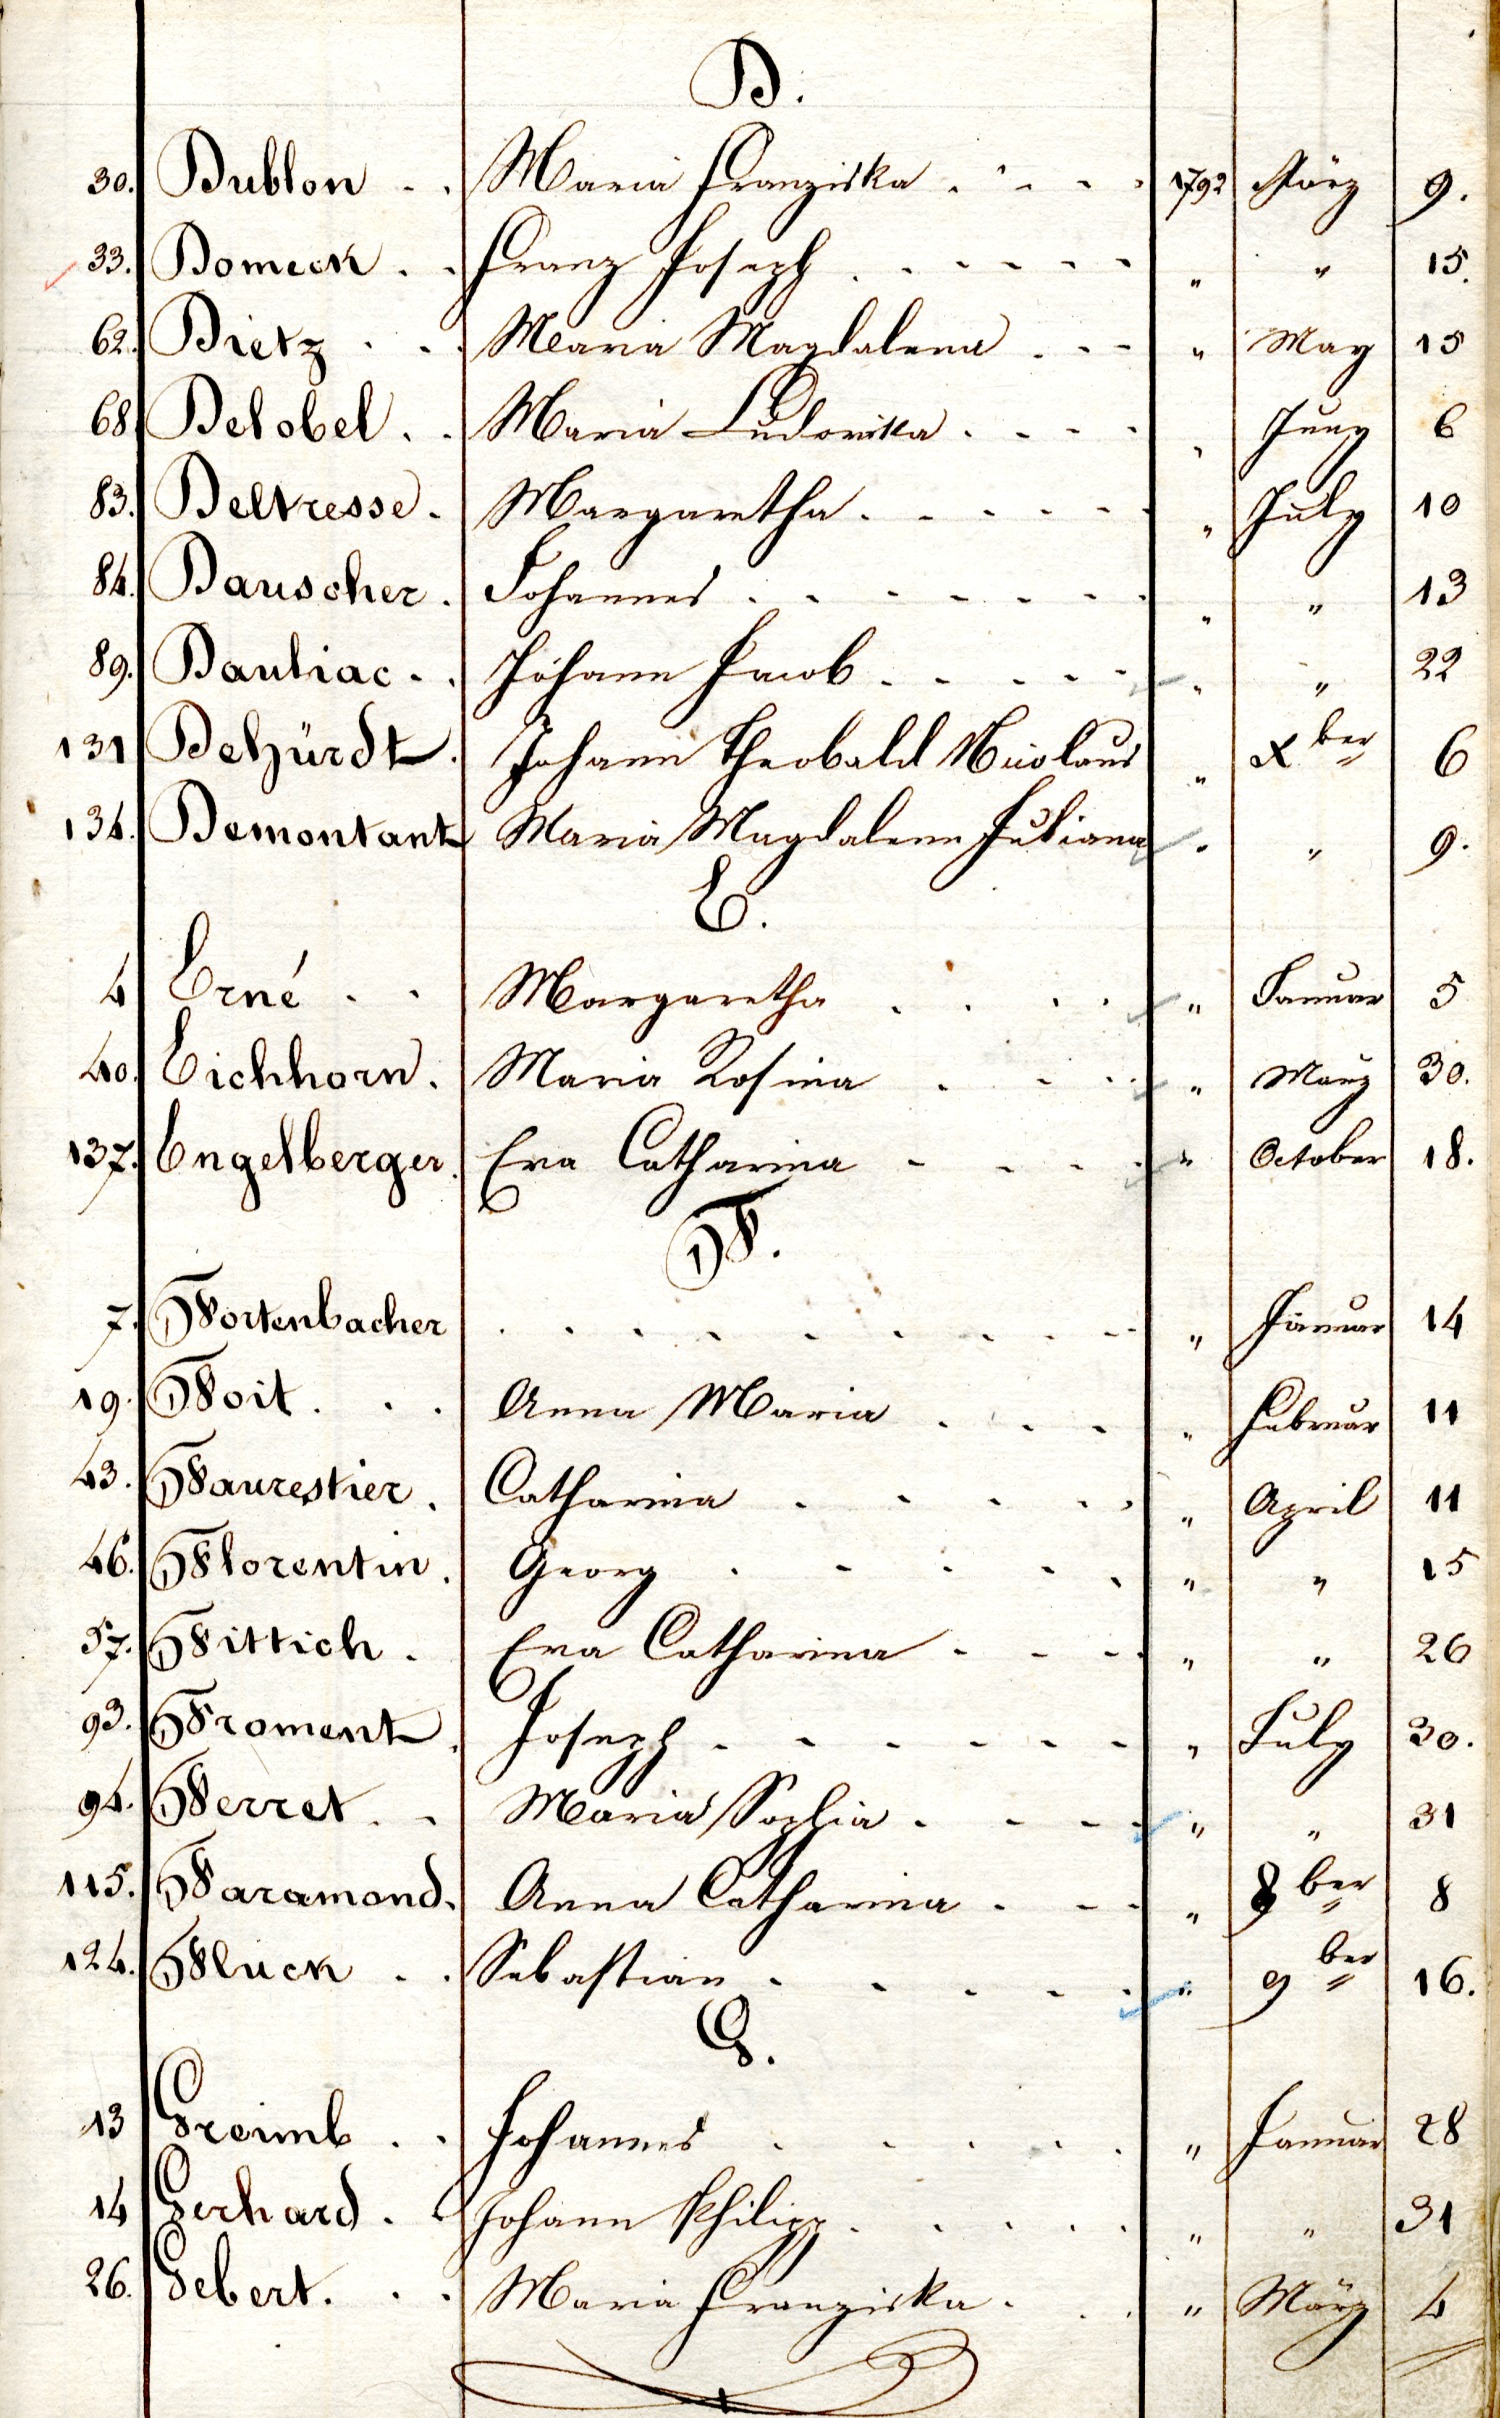 D.
30. Dublon . . Maria Franziska . . . . 1792 März 9.
33. Domeck . . Franz Joseph . . . . . . " " 15.
62. Dietz . . . Maria Magdalena . . . " May 15
68. Delobel . . Maria Ludovika . . . . " Juny 6
83. Deltresse . Margaretha . . . . . . " July 10
84. Dauscher . Johannes . . . . . . . " " 13
89. Dauliac . . Johann Jacob . . . . . " " 22
131 Dehürdt . Johann Theobald Nicolaus " Xber 6
134. Demontant Maria Magdalena Juliana " " 9.
E.
4 Erné . . Margaretha . . . . " Januar 5
40. Eichhorn . Maria Rosina . . . " März 30.
137. Engelberger . Eva Catharina . . . . " October 18.
F.
7. Fortenbacher . . . . . . . . . " Januar 14
19. Foit . . . Anna Maria . . . . " Februar 11
43. Faurestier . Catharina . . . . . " April 11
46. Florentin . Georg . . . . . " " 15
57. Fittich . Eva Catharina . . . . " " 26
93. Froment . Joseph . . . . . . " July 30.
94. Ferret . . Maria Sophia . . . . " " 31
115. Faramond . Anna Catharina . . . " 8ber 8
124. Fluck . . Sebastian . . . . . " 9ber 16.
G.
13 Greimb . . Johannes . . . . . " Januar 28
14 Gerhard . . Johann Philipp . . . . . " " 31
26. Gebert . . . Maria Franziska . . . " März 4